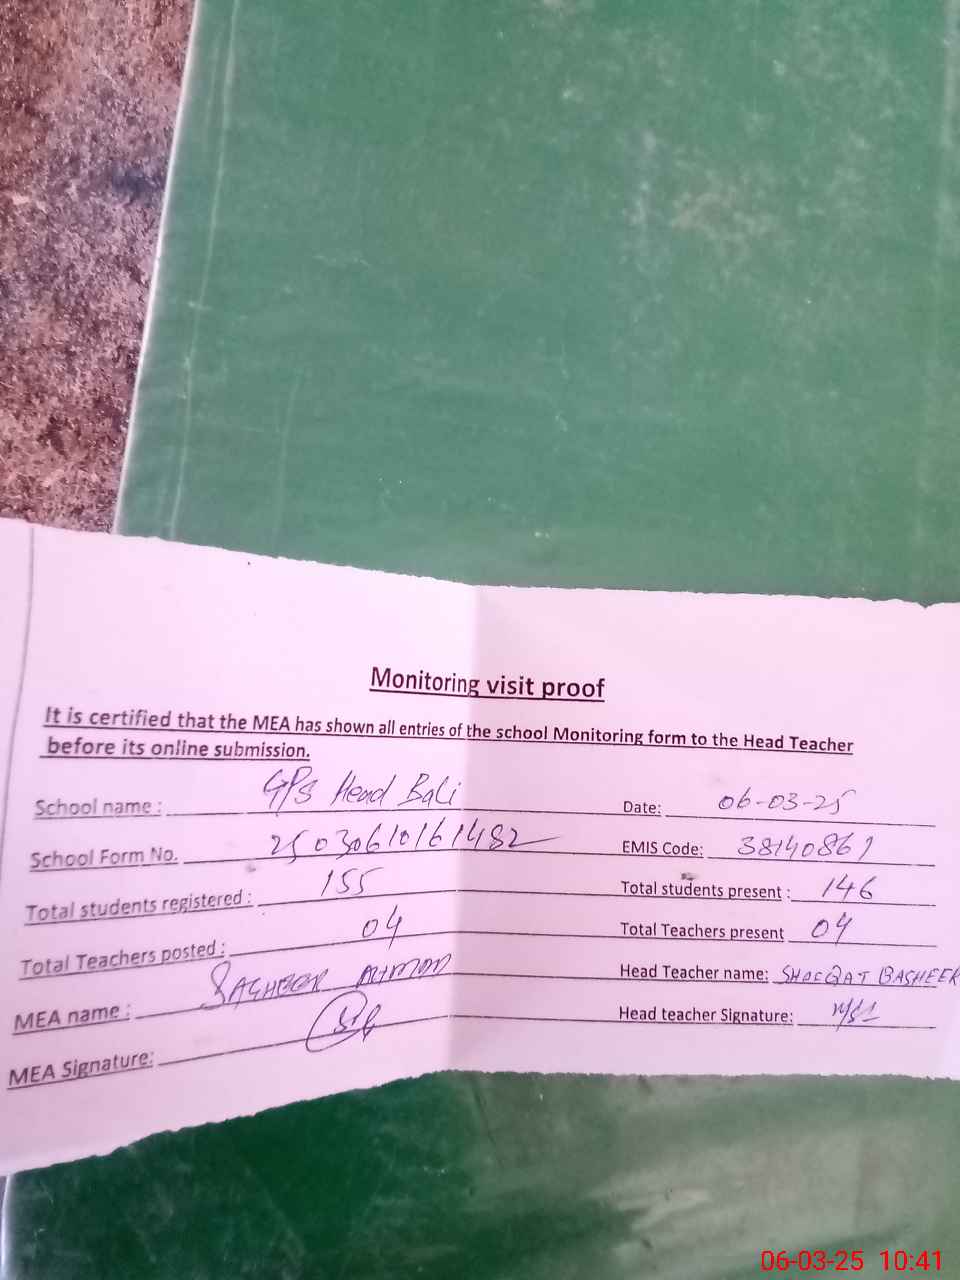 Monitoring visit proof
It is certified that the MEA has shown all entries of the school Monitoring form to the Head Teacher
before its online submission.
School name : GPS Head Bali
Date: 06-03-25
School Form No. 25030610161482
EMIS Code: 38140861
Total students registered : 155
Total students present : 146
Total Teachers posted : 04
Total Teachers present 04
MEA name : SAGHEER
Head Teacher name: SHOEQAT BASHEER
MEA Signature:
Head teacher Signature:
06-03-25 10:41